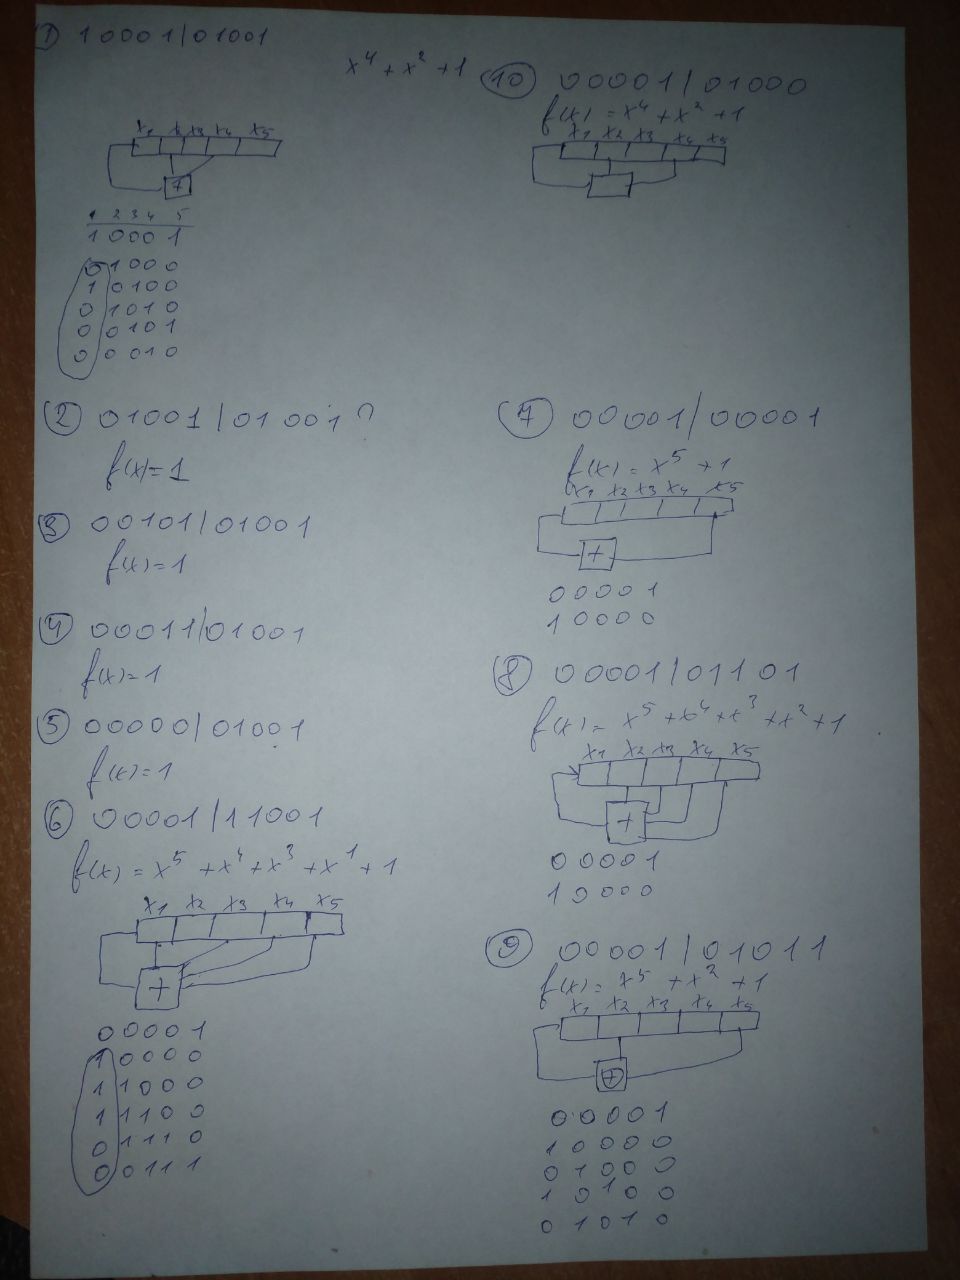 1) 10001/01001
x⁴+x²+1
x₁ x₂ x₃ x₄ x₅
+
1 2 3 4 5
1 0 0 0 1
0 1 0 0 0
1 0 1 0 0
0 1 0 1 0
0 0 1 0 1
0 0 0 1 0
2) 01001/01001?
f(x)=1
3) 00101/01001
f(x)=1
4) 00011/01001
f(x)=1
5) 00000/01001
f(x)=1
6) 00001/11001
f(x)=x⁵+x⁴+x³+x¹+1
x₁ x₂ x₃ x₄ x₅
+
0 0 0 0 1
1 0 0 0 0
1 1 0 0 0
1 1 1 0 0
0 1 1 1 0
0 0 1 1 1
10) 00001/01000
f(x)=x⁴+x²+1
x₁ x₂ x₃ x₄ x₅
7) 00001/00001
f(x)=x⁵+1
x₁ x₂ x₃ x₄ x₅
+
0 0 0 0 1
1 0 0 0 0
8) 00001/01101
f(x)=x⁵+x⁴+x³+x²+1
x₁ x₂ x₃ x₄ x₅
+
0 0 0 0 1
1 0 0 0 0
9) 00001/01011
f(x)=x⁵+x²+1
x₁ x₂ x₃ x₄ x₅
+
0 0 0 0 1
1 0 0 0 0
0 1 0 0 0
1 0 1 0 0
0 1 0 1 0